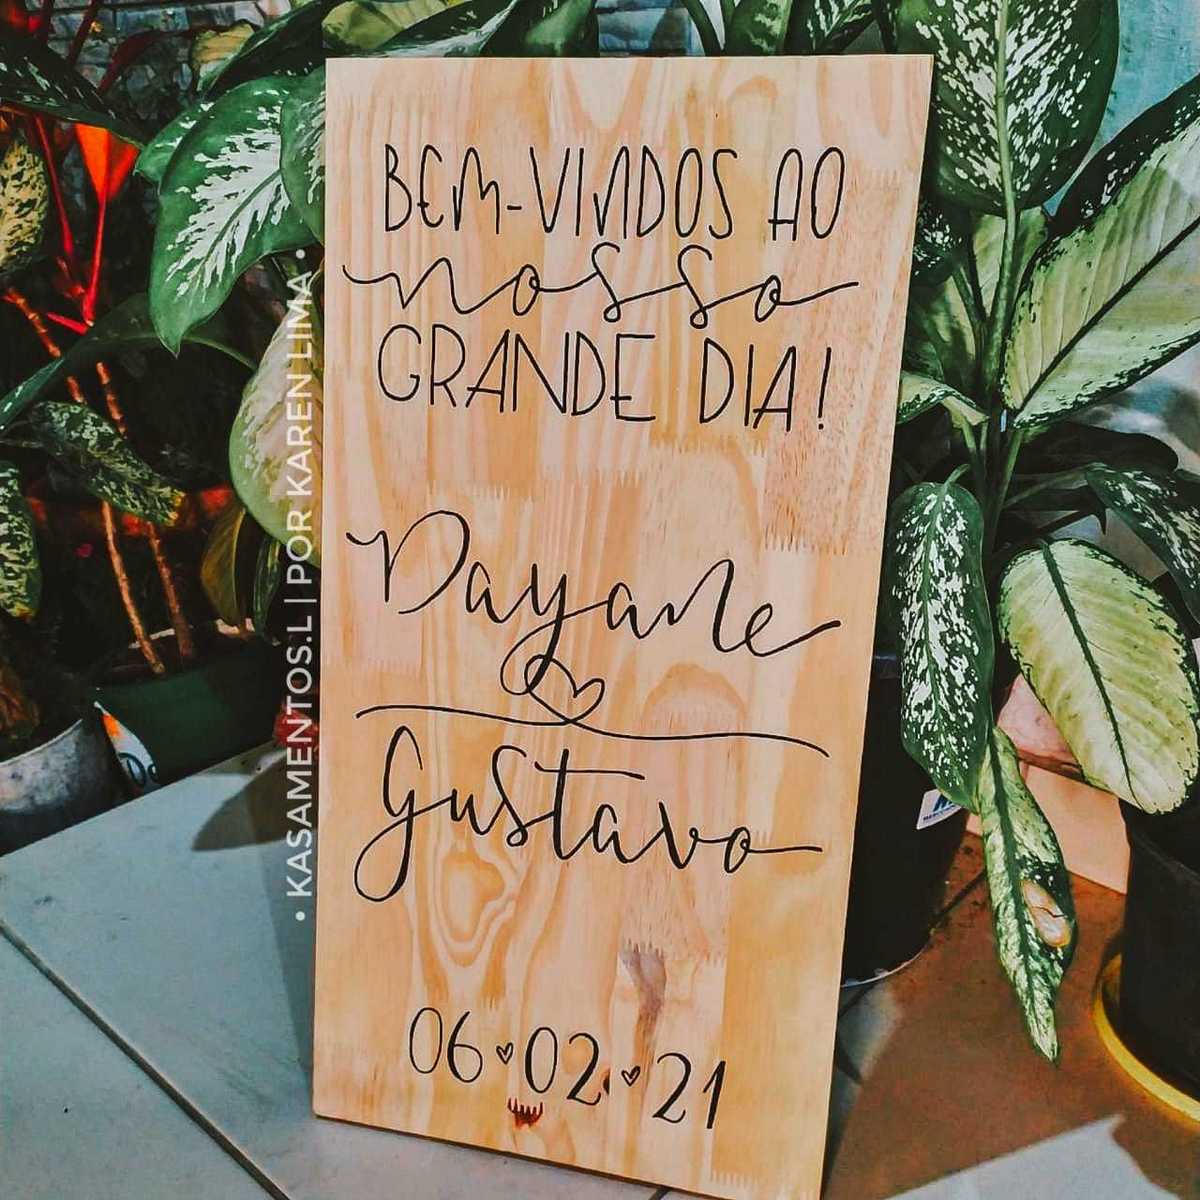 BEM-VINDOS AO
nosso
GRANDE DIA!
Dayane
Gustavo
06 ♥ 02 ♥ 21
• KASAMENTOS.L | POR KAREN LIMA •